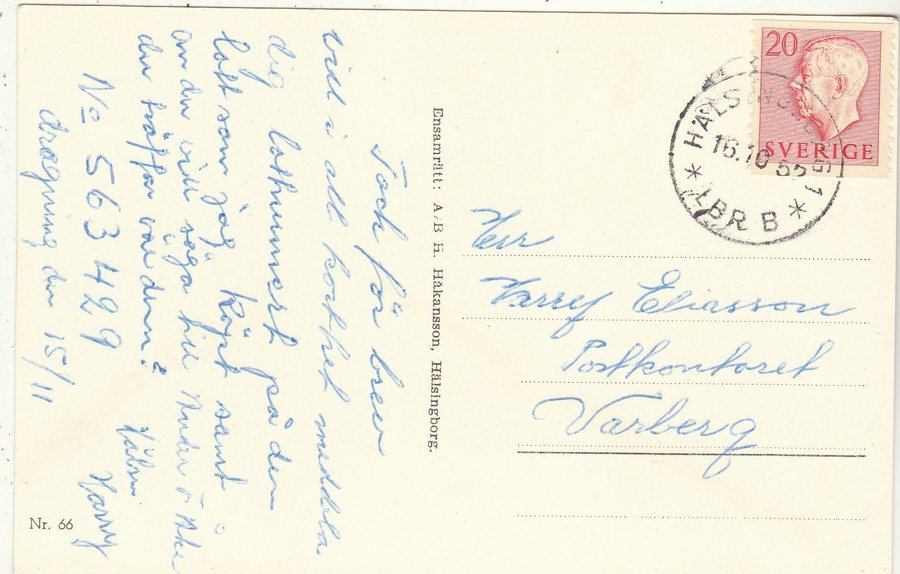 Tack för brev
vill i all korthet meddela
dig lottnumert på den
lott som jag köpt samt
om du vill säga till
du träffar var dem?
Hälsn.
Harry
No 563429
dragning den 15/11
Ensamrätt: A/B H. Håkansson, Hälsingborg.
Nr. 66
20
SVERIGE
HÄLSINGBORG 1
16.10
LBR B
Herr
Eliasson
Postkontoret
Varberg